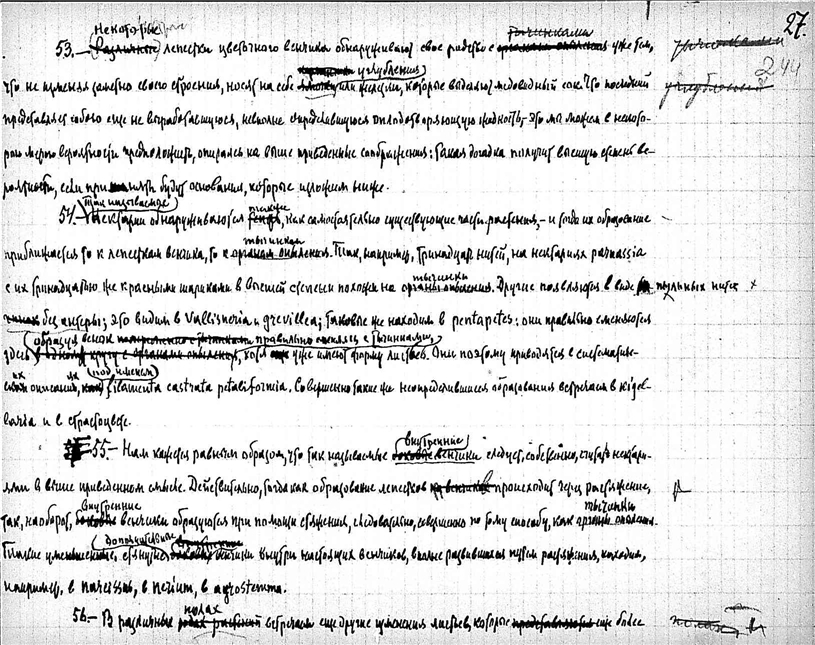 27.
244
Некоторые тычинками
53.— Различные лепестки цветочного венчика обнаруживают свое родство с органами опыления уже тем, тычинками
углубления
что не изменяя заметно своего строения, носят на себе или железки, которые выделяют медовидный сок. Что последний углубления
представляет собою еще не выработавшуюся, неполне определившуюся оплодотворяющую жидкость,— это мы можем в некото-
рою мерою вероятности предположить, опираясь на выше приведенные соображения: Такая догадка получит высшую степень ве-
роятности, если приняты будут основания, которые изложим ниже.
Так называемые также
54.— Нектарии обнаруживаются, как самостоятельно существующие части растения,— и тогда их образование
тычинкам
приближается то к лепесткам венчика, то к органам опыления. Так, например, тринадцать нитей, на нектариях parnassia
тычинки
с их тринадцатью же красными шариками в высшей степени похожи на органы опыления. Другие появляются в виде пыльных нитей
без антеры; это видим в Vallisneria и grevillea; таковые же находим в pentapetes: они правильно сменяются
образуя венок правильно сменяясь с тычинками
здесь в одном кругу с органами опыления, хотя уже имеют форму листьев. Они поэтому приводятся в системати-
их под именем
описаниях, как filamenta castrata petaliformia. Совершенно такие же неопределившиеся образования встречаем в kiggel-
laria и в страстоцвете.
внутренние
55.— Нам кажется равным образом, что так называемые боковые венчики следует, собственно, считать нектари-
ями в выше приведенном смысле. Действительно, тогда как образование лепестков венчиков происходит через растяжение,
внутренние тычинки
так, наоборот, боковые венчики образуются при помощи стяжения, следовательно, совершенно по тому способу, как органы опыления.
дополнительные
Такие уменьшенные, стянутые боковые венчики внутри настоящих венчиков, вполне развившихся путем растяжения, находим,
например, в narcissus, в nerium, в agrostemma.
полах
56.— В различных родах растений встречаем еще другие изменения листьев, которые представляются еще более